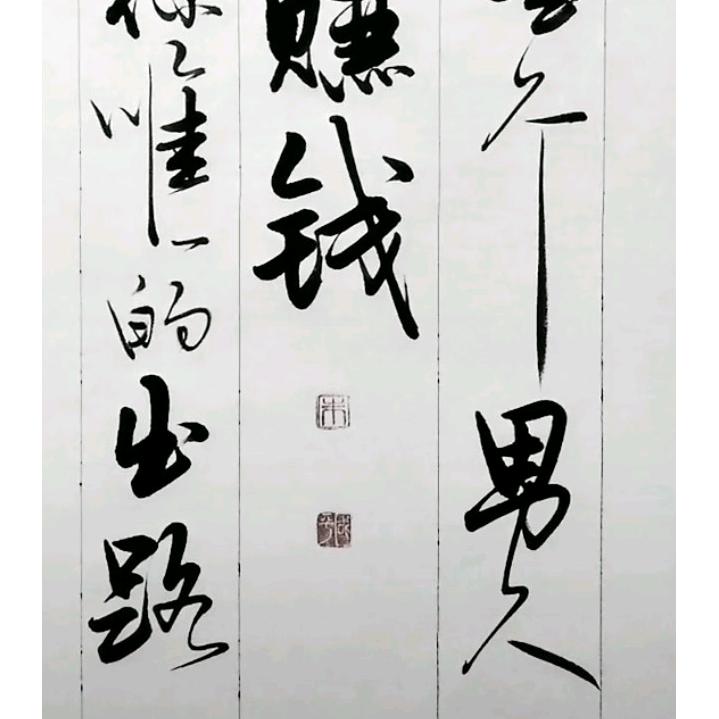 个男人
赚钱
你唯一的出路